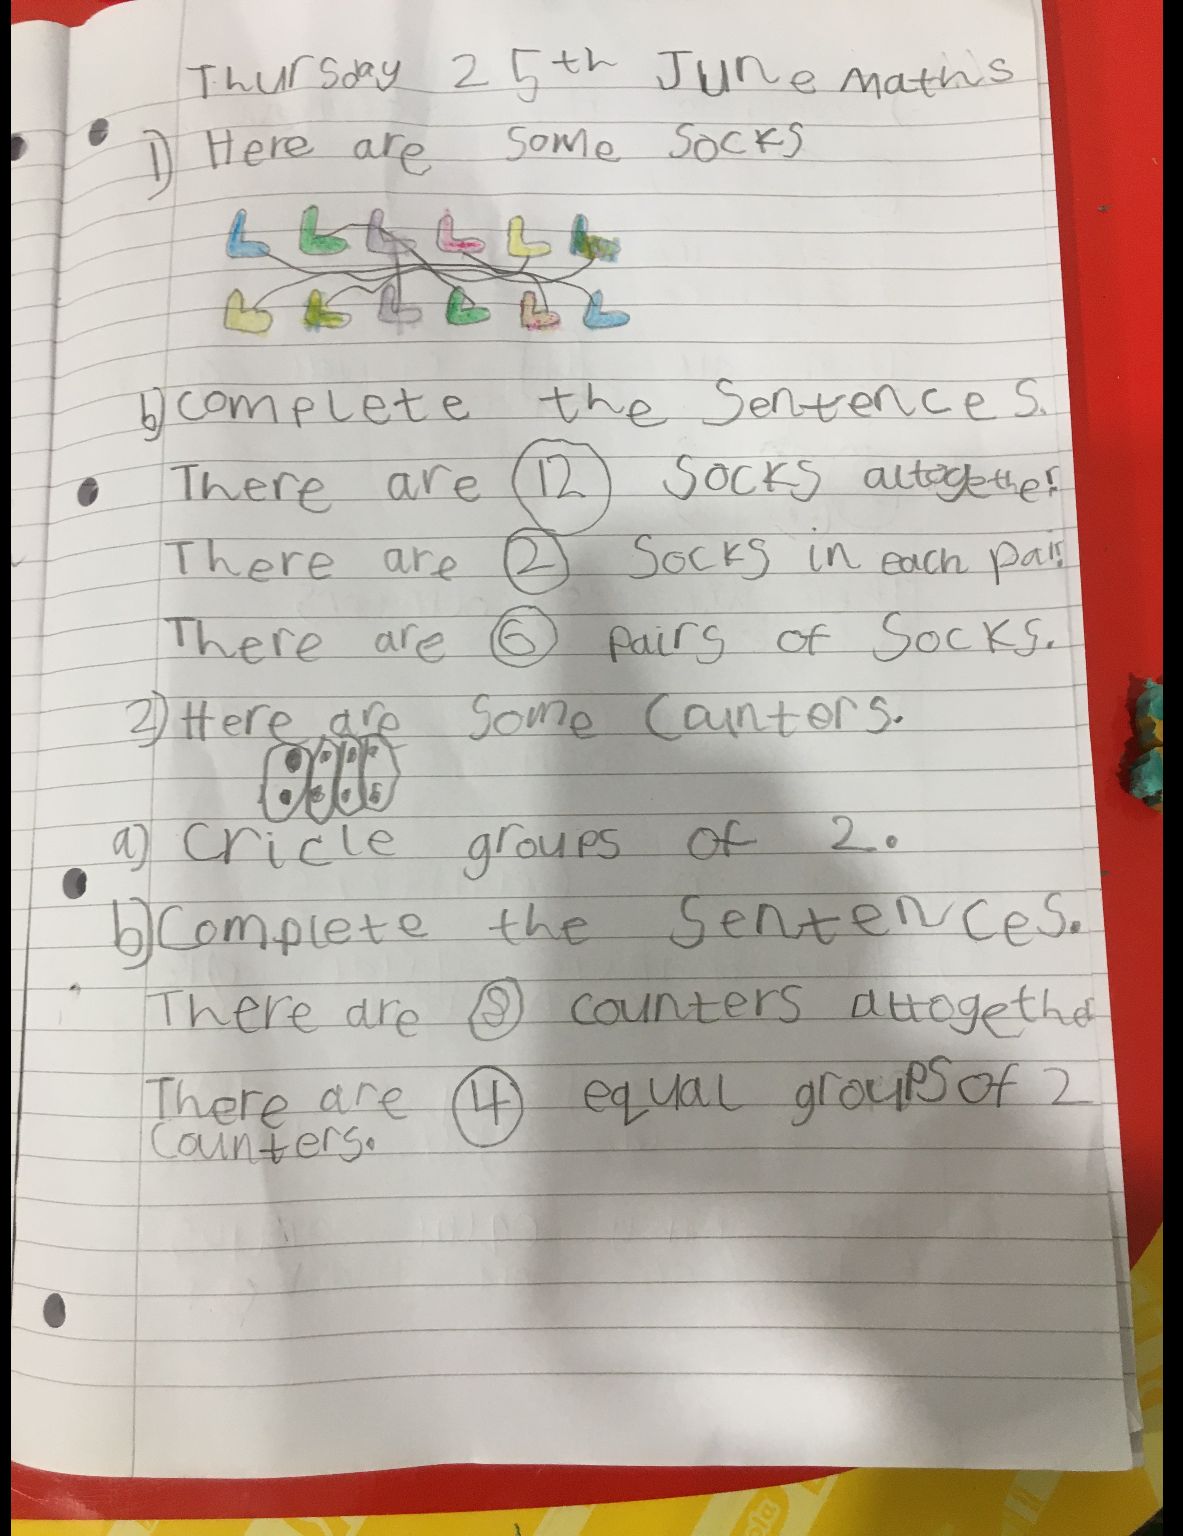 Thursday 25th June maths
1) Here are some socks
b) complete the sentences.
There are 12 socks altogether.
There are 2 socks in each pair
There are 6 pairs of socks.
2) Here are some counters.
a) cricle groups of 2.
b) Complete the sentences.
There are 8 counters attogether
There are 4 equal groups of 2
counters.